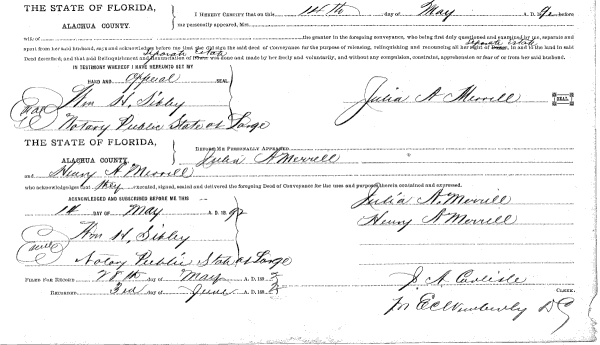 THE STATE OF FLORIDA,
ALACHUA COUNTY.
I HEREBY CERTIFY that on this 14th day of May A. D. 92 before
me personally appeared, Mrs.
wife of the grantor in the foregoing conveyance, who being first duly questioned and examined by me, separate and
apart from her said husband, says and acknowledges before me that she did sign the said deed of Conveyance for the purpose of releasing, relinquishing and renouncing all her right of separate estate in and to the land in said
Deed described, and that said Relinquishment and Renunciation of separate estate was done and made by her freely and voluntarily, and without any compulsion, constraint, apprehension or fear of or from her said husband.
IN TESTIMONY WHEREOF I HAVE HEREUNTO SET MY
HAND AND official SEAL
Seal Wm H. Sibley
Notary Public State at Large
Julia A Merrill SEAL
THE STATE OF FLORIDA,
ALACHUA COUNTY.
BEFORE ME PERSONALLY APPEARED Julia A Merrill
and Henry A. Merrill
who acknowledges that they executed, signed, sealed and delivered the foregoing Deed of Conveyance for the uses and purposes therein contained and expressed.
ACKNOWLEDGED AND SUBSCRIBED BEFORE ME THIS
14 DAY OF May A. D. 1892
Julia A. Merrill
Henry A Merrill
Seal Wm H. Sibley
Notary Public State at Large
FILED FOR RECORD 28th day of May A. D. 1892
RECORDED 3rd day of June A. D. 1892
J. A. Carlisle
CLERK.
Pr E C Wimberly D C